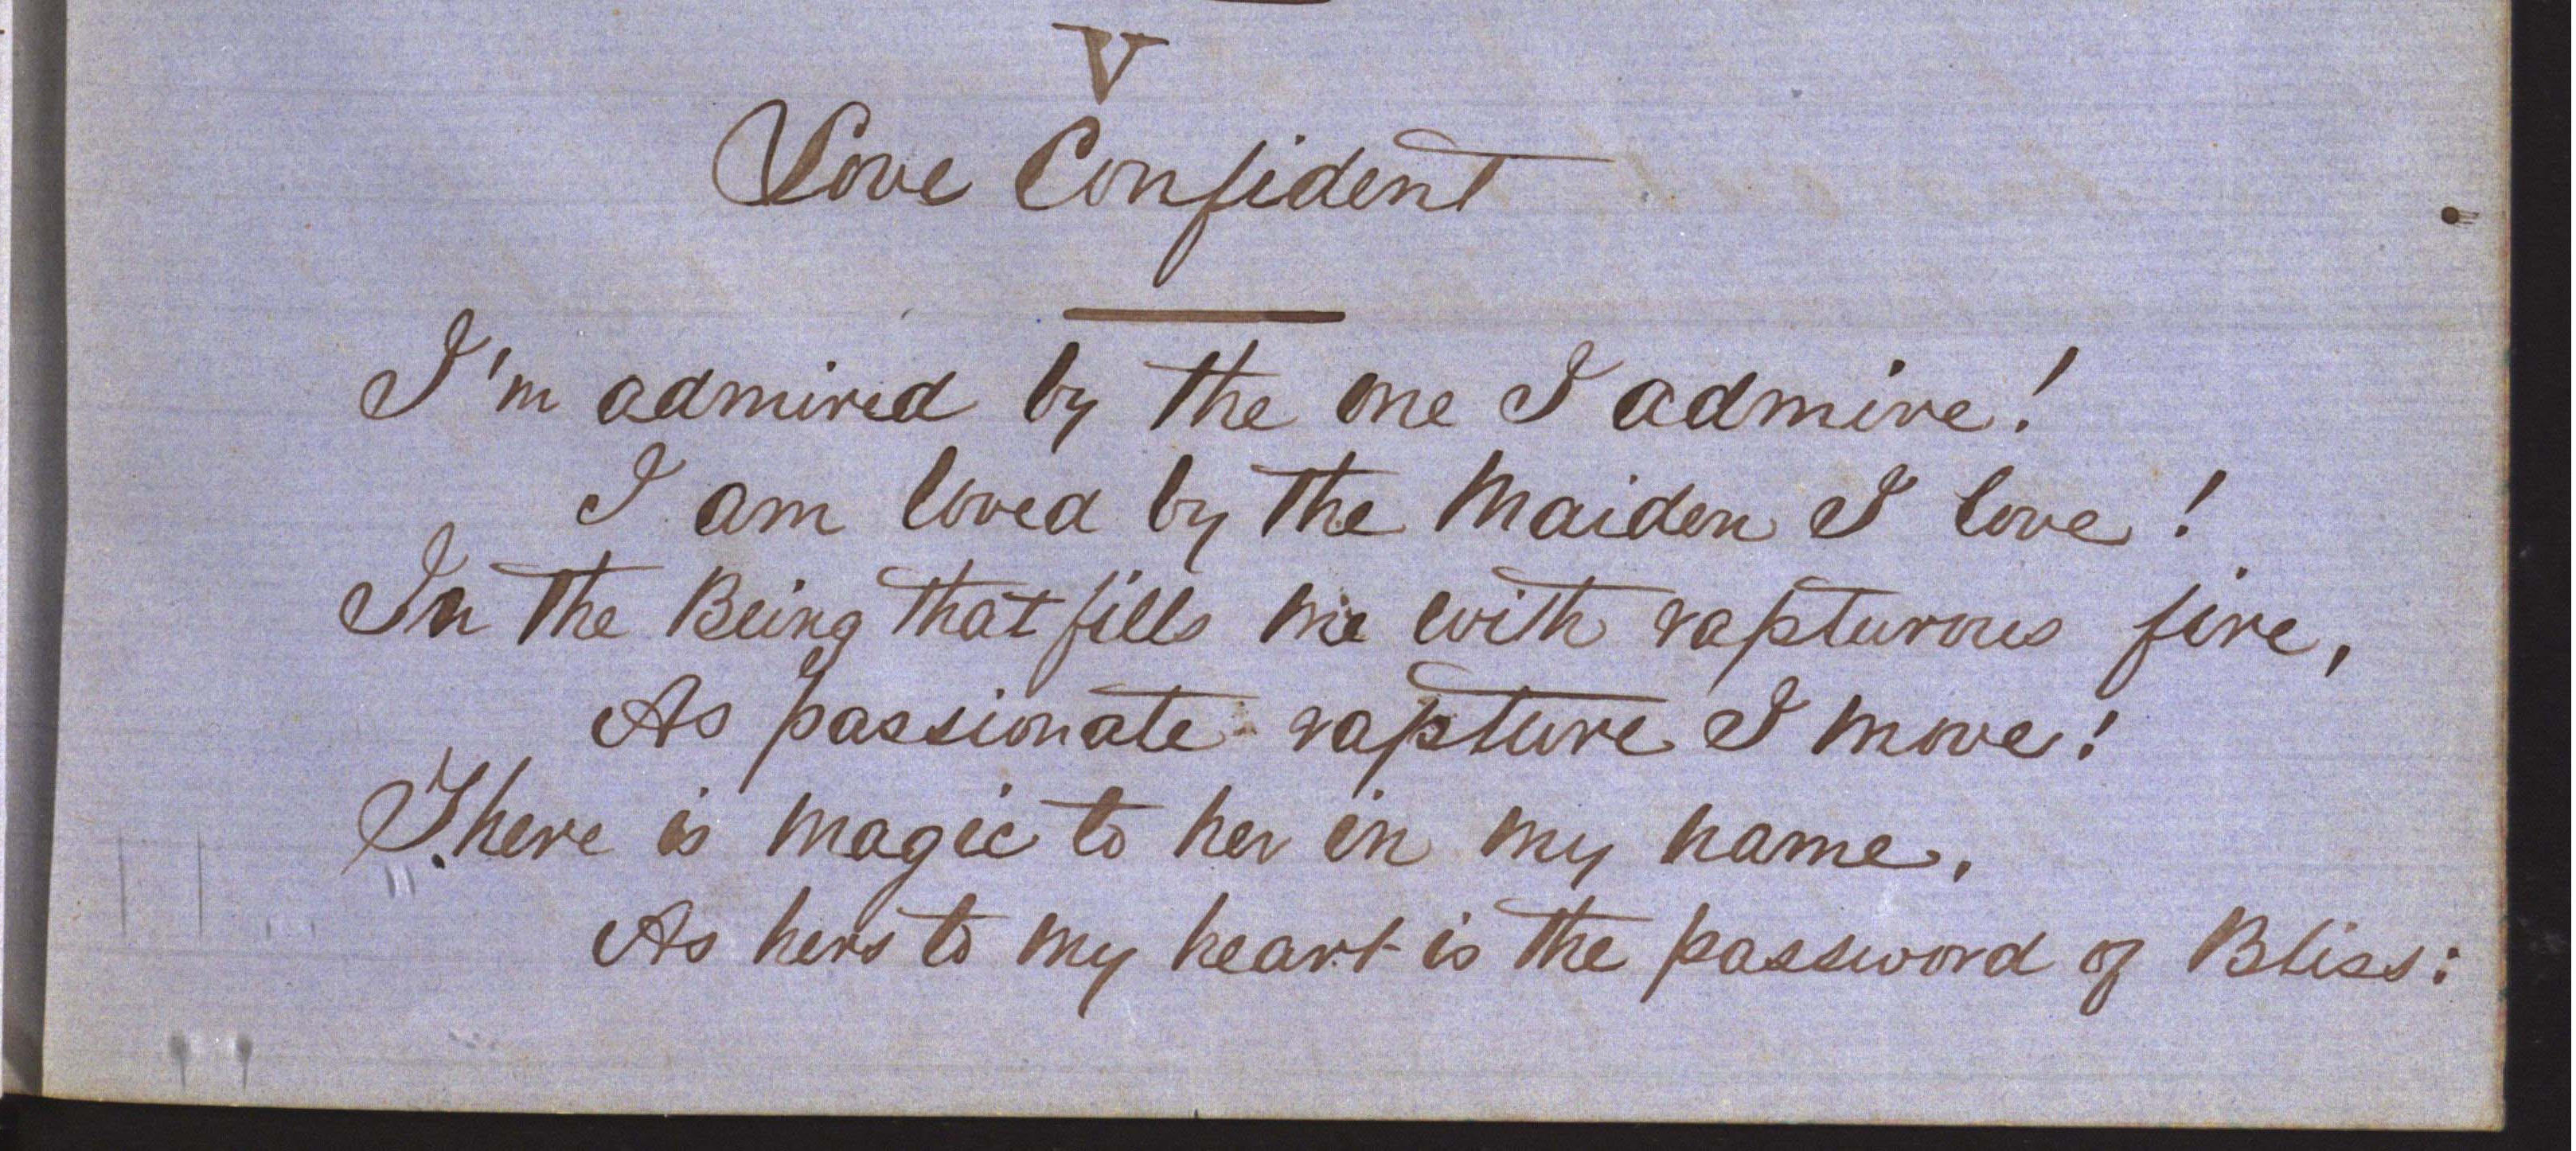 V
Love Confident
I'm admired by the one I admire!
I am loved by the Maiden I love!
In the Being that fills me with rapturous fire,
As passionate rapture I move!
There is magic to her in my name,
As hers to my heart is the password of Bliss: